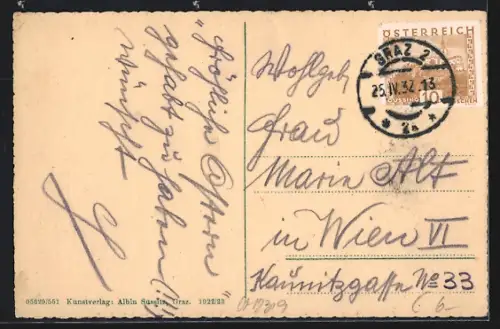 "fröhliche Ostern"
gehabt zu haben (!!)
wünscht
ÖSTERREICH
GÜSSING
10
GRAZ 2
25.IV.32 13
* 2a *
Wohlgeb.
Frau
Marie Alt
in Wien VI
Kaunitzgasse No 33
05529/561 Kunstverlag: Albin Sussitz, Graz. 1922/23
6-